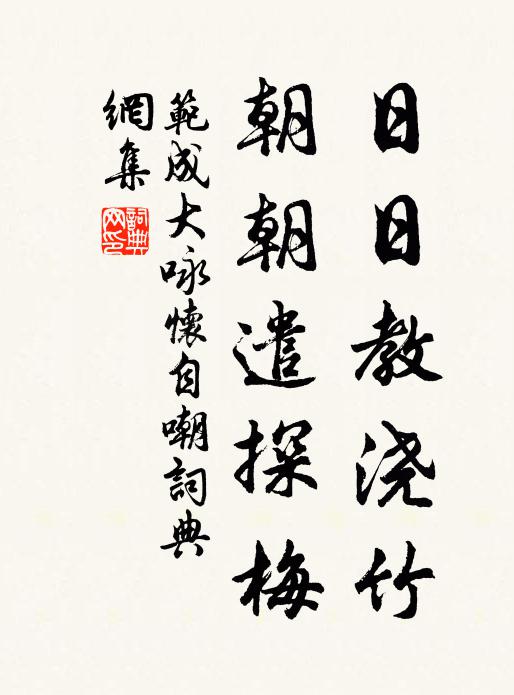 日日教浇竹
朝朝遣探梅
範成大咏懷自嘲詞典
網集
詞典
网印